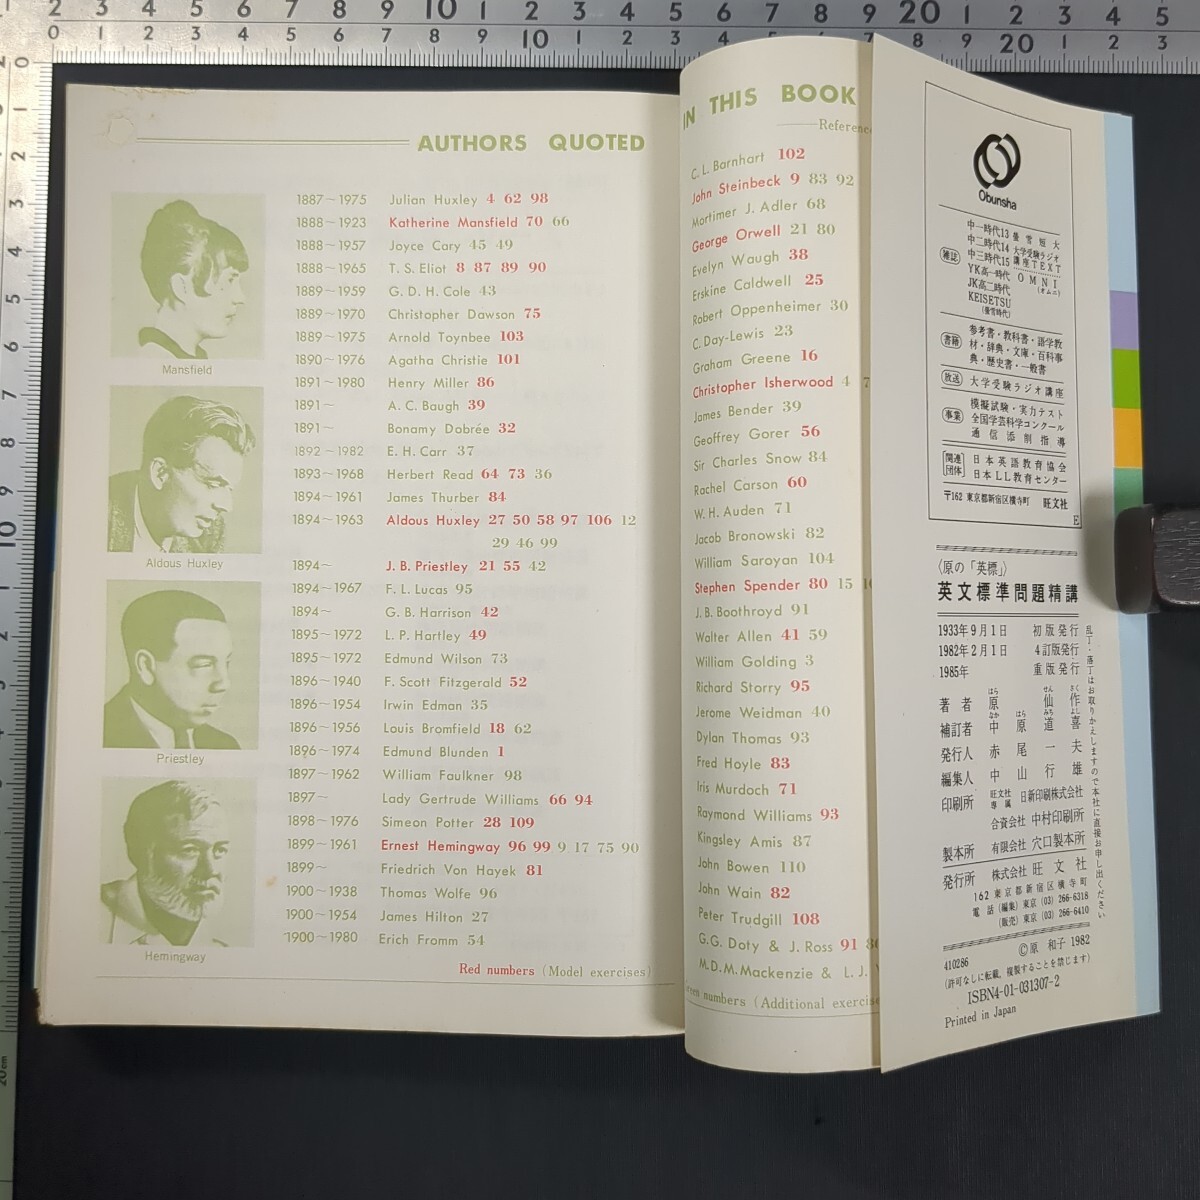 AUTHORS QUOTED
1887～1975 Julian Huxley 4 62 98
1888～1923 Katherine Mansfield 70 66
1888～1957 Joyce Cary 45 49
1888～1965 T. S. Eliot 8 87 89 90
1889～1959 G. D. H. Cole 43
1889～1970 Christopher Dawson 75
1889～1975 Arnold Toynbee 103
1890～1976 Agatha Christie 101
1891～1980 Henry Miller 86
1891～ A. C. Baugh 39
1891～ Bonamy Dobrée 32
1892～1982 E. H. Carr 37
1893～1968 Herbert Read 64 73 36
1894～1961 James Thurber 84
1894～1963 Aldous Huxley 27 50 58 97 106 12
29 46 99
1894～ J. B. Priestley 21 55 42
1894～1967 F. L. Lucas 95
1894～ G. B. Harrison 42
1895～1972 L. P. Hartley 49
1895～1972 Edmund Wilson 73
1896～1940 F. Scott Fitzgerald 52
1896～1954 Irwin Edman 35
1896～1956 Louis Bromfield 18 62
1896～1974 Edmund Blunden 1
1897～1962 William Faulkner 98
1897～ Lady Gertrude Williams 66 94
1898～1976 Simeon Potter 28 109
1899～1961 Ernest Hemingway 96 99 9 17 75 90
1899～ Friedrich Von Hayek 81
1900～1938 Thomas Wolfe 96
1900～1954 James Hilton 27
1900～1980 Erich Fromm 54
Red numbers (Model exercises)
Mansfield
Aldous Huxley
Priestley
Hemingway
IN THIS BOOK
Reference
C. L. Barnhart 102
John Steinbeck 9 83 92
Mortimer J. Adler 68
George Orwell 21 80
Evelyn Waugh 38
Erskine Caldwell 25
Robert Oppenheimer 30
C. Day-Lewis 23
Graham Greene 16
Christopher Isherwood 4 7
James Bender 39
Geoffrey Gorer 56
Sir Charles Snow 84
Rachel Carson 60
W. H. Auden 71
Jacob Bronowski 82
William Saroyan 104
Stephen Spender 80 15
J. B. Boothroyd 91
Walter Allen 41 59
William Golding 3
Richard Storry 95
Jerome Weidman 40
Dylan Thomas 93
Fred Hoyle 83
Iris Murdoch 71
Raymond Williams 93
Kingsley Amis 87
John Bowen 110
John Wain 82
Peter Trudgill 108
G.G. Doty & J. Ross 91
M.D.M. Mackenzie & L. J.
numbers (Additional exercise
Obunsha
雑誌
中一時代13 螢雪短大
中二時代14 大学受験ラジオ
中三時代15 講座TEXT
YK高一時代 OMNI
JK高二時代 (オムニ)
KEISETSU
(螢雪時代)
書籍 参考書・教科書・語学教
材・辞典・文庫・百科事
典・歴史書・一般書
放送 大学受験ラジオ講座
事業 模擬試験・実力テスト
全国学芸科学コンクール
通信添削指導
関連団体 日本英語教育協会
日本LL教育センター
〒162 東京都新宿区横寺町 旺文社
E
〈原の「英標」〉
英文標準問題精講
1933年9月1日 初版発行
1982年2月1日 4訂版発行
1985年 重版発行
著者 原 仙作
はら せん さく
補訂者 中原道喜
なか はら みち よし
発行人 赤尾一夫
編集人 中山行雄
印刷所 旺文社専属 日新印刷株式会社
合資会社 中村印刷所
製本所 有限会社 穴口製本所
発行所 株式会社 旺文社
162 東京都新宿区横寺町
電話 (編集) 東京 (03) 266-6318
(販売) 東京 (03) 266-6410
乱丁・落丁はお取りかえしますので本社に直接お申し出ください
©原 和子 1982
410286
(許可なしに転載，複製することを禁じます)
ISBN4-01-031307-2
Printed in Japan